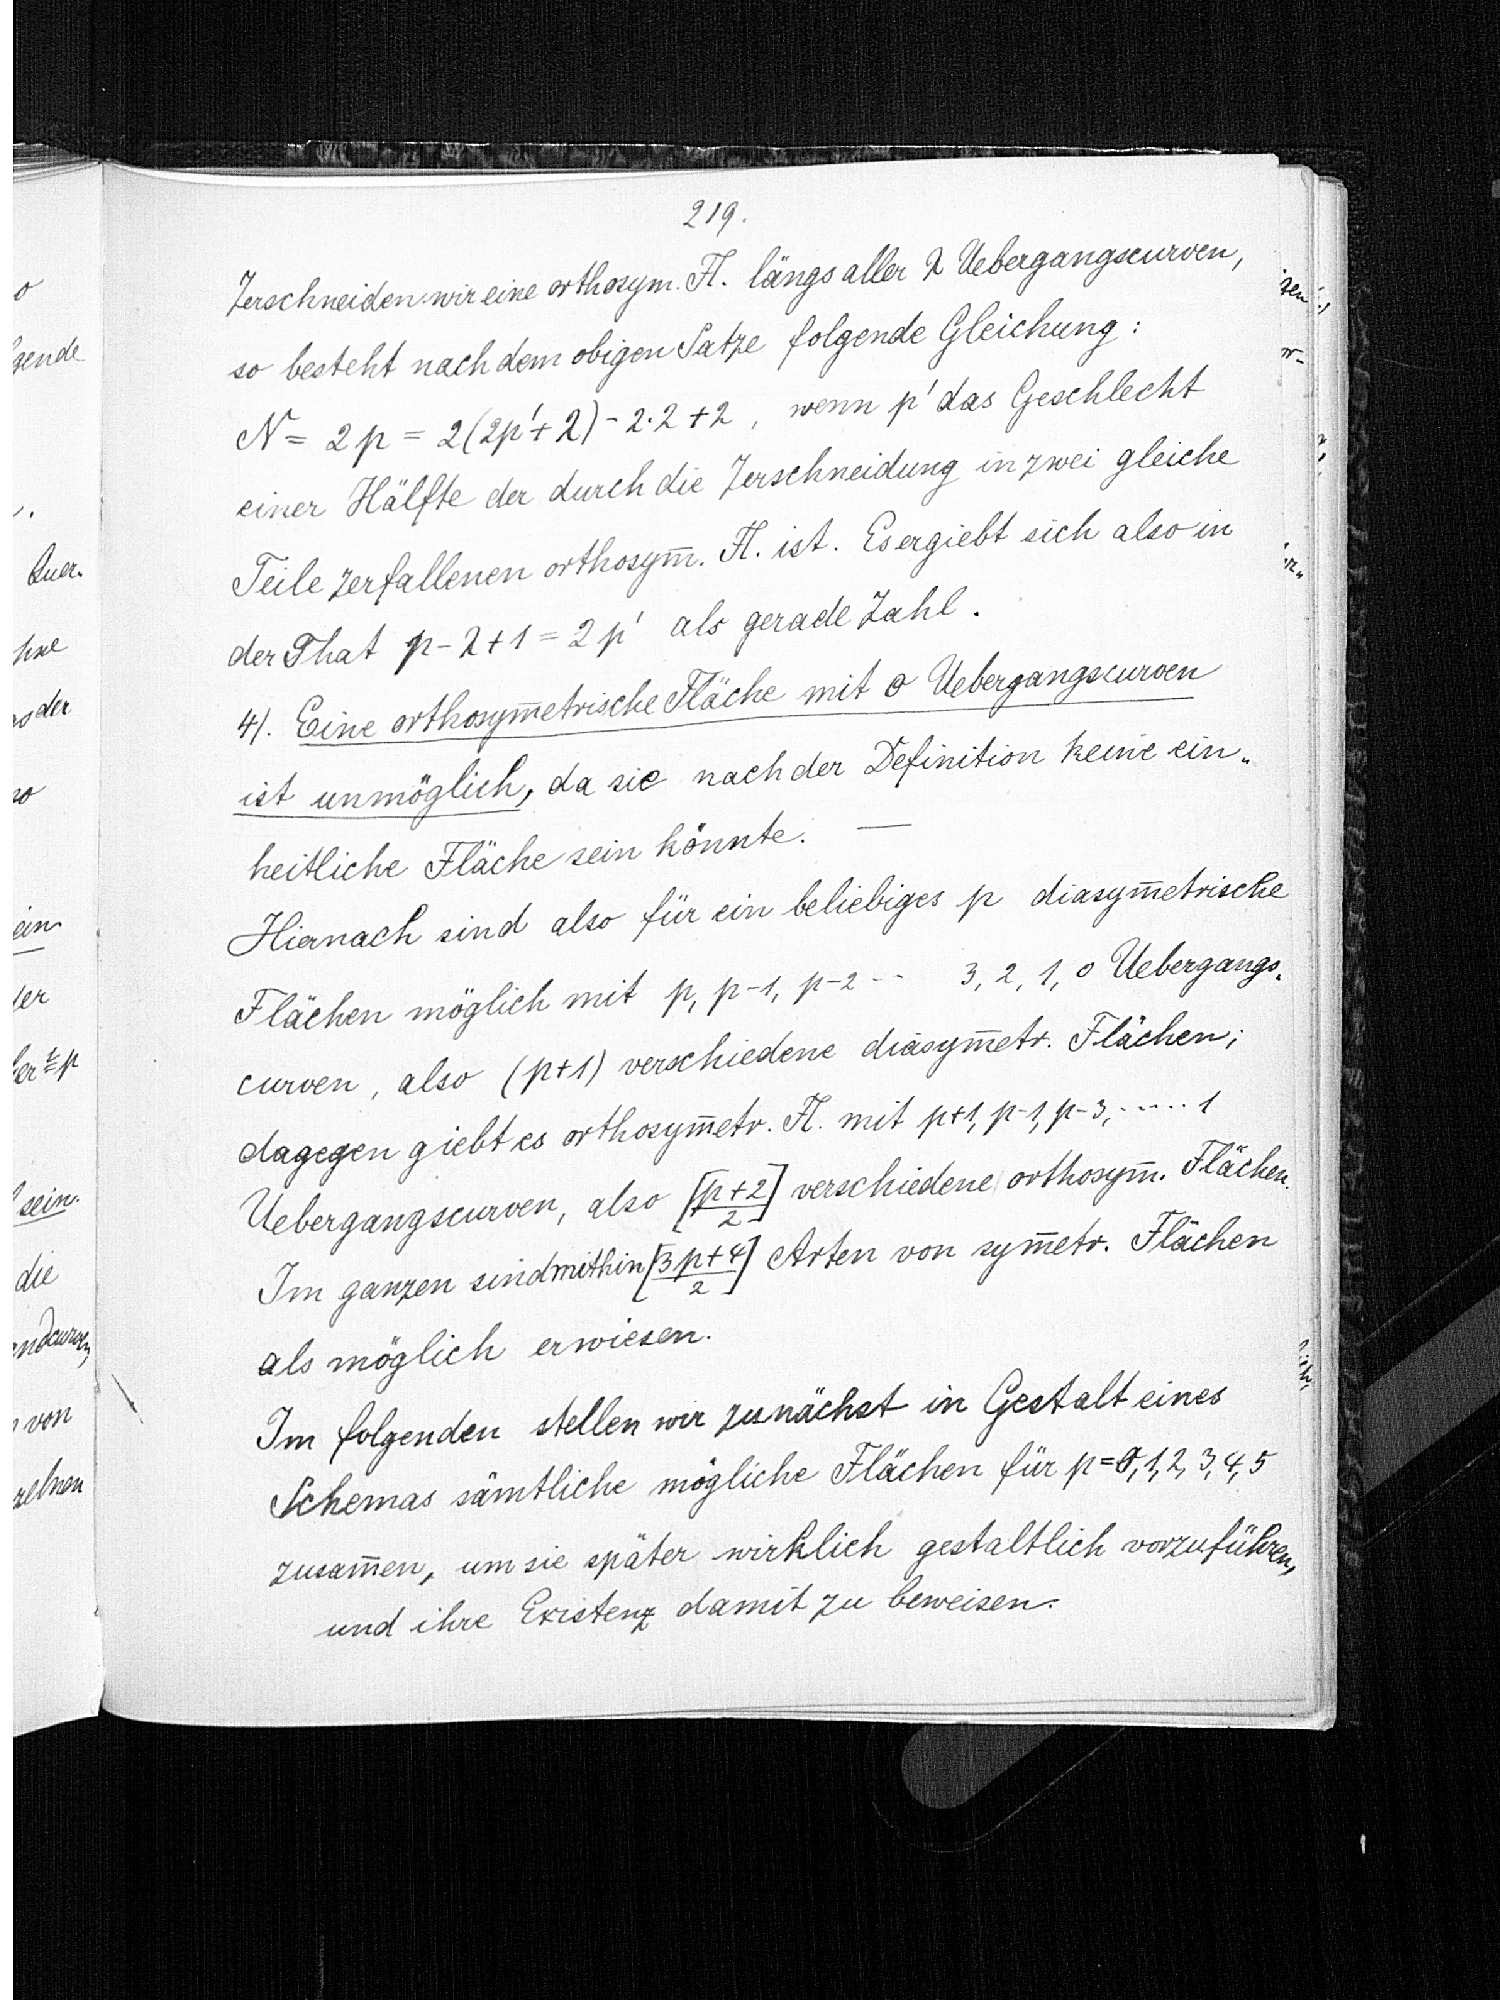 219.
Zerschneiden wir eine orthosym. Fl. längs aller λ Uebergangscurven,
so besteht nach dem obigen Satze folgende Gleichung:
N = 2p = 2(2p'+λ) - 2·2 + 2, wenn p' das Geschlecht
einer Hälfte der durch die Zerschneidung in zwei gleiche
Teile zerfallenen orthosym̅. Fl. ist. Es ergiebt sich also in
der That p - λ + 1 = 2p' als gerade Zahl.
4). Eine orthosym̅etrische Fläche mit 0 Uebergangscurven
ist unmöglich, da sie nach der Definition keine ein„
heitliche Fläche sein könnte. —
Hiernach sind also für ein beliebiges p diasym̅etrische
Flächen möglich mit p, p-1, p-2 -- 3, 2, 1, 0 Uebergangs„
curven, also (p+1) verschiedene diasym̅etr. Flächen;
dagegen giebt es orthosym̅etr. Fl. mit p+1, p-1, p-3, ..... 1
Uebergangscurven, also [p+2/2] verschiedene orthosym̅. Flächen.
Im ganzen sind mithin [3p+4/2] Arten von sym̅etr. Flächen
als möglich erwiesen.
Im folgenden stellen wir zunächst in Gestalt eines
Schemas sämtliche mögliche Flächen für p=0, 1, 2, 3, 4, 5
zusam̅en, um sie später wirklich gestaltlich vorzuführen,
und ihre Existenz damit zu beweisen.